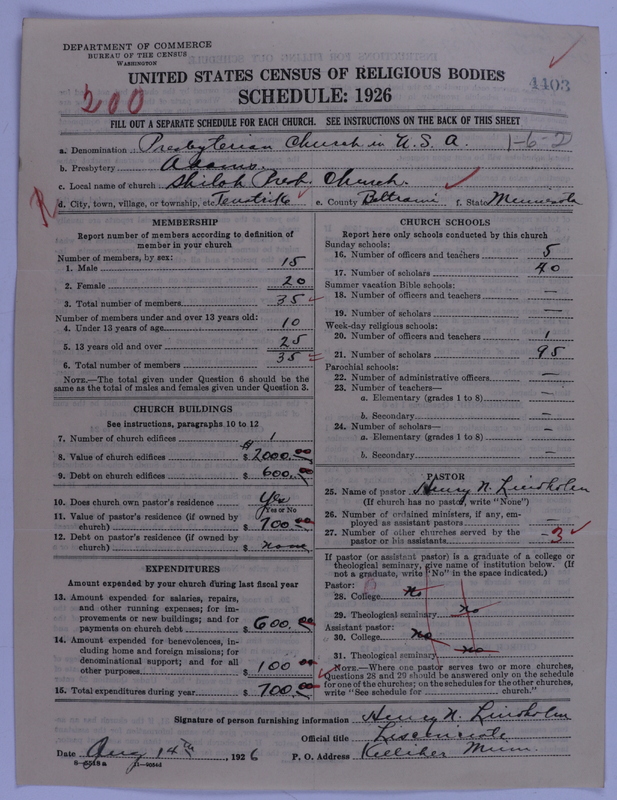 DEPARTMENT OF COMMERCE
BUREAU OF THE CENSUS
WASHINGTON
UNITED STATES CENSUS OF RELIGIOUS BODIES
SCHEDULE: 1926
200
4403
FILL OUT A SEPARATE SCHEDULE FOR EACH CHURCH. SEE INSTRUCTIONS ON THE BACK OF THIS SHEET
a. Denomination Presbyterian Church in U. S. A. 1-6-2
b. Presbytery Adams.
c. Local name of church Shiloh Pres. Church.
d. City, town, village, or township, etc. Tenstrike e. County Beltrami f. State Minnesota
MEMBERSHIP
Report number of members according to definition of member in your church
Number of members, by sex:
1. Male 15
2. Female 20
3. Total number of members 35
Number of members under and over 13 years old:
4. Under 13 years of age 10
5. 13 years old and over 25
6. Total number of members 35
NOTE.—The total given under Question 6 should be the same as the total of males and females given under Question 3.
CHURCH BUILDINGS
See instructions, paragraphs 10 to 12
7. Number of church edifices 1
8. Value of church edifices $ 2000.00
9. Debt on church edifices $ 600.00
10. Does church own pastor's residence Yes
Yes or No
11. Value of pastor's residence (if owned by church) $ 700.00
12. Debt on pastor's residence (if owned by church) $ none
EXPENDITURES
Amount expended by your church during last fiscal year
13. Amount expended for salaries, repairs, and other running expenses; for improvements or new buildings; and for payments on church debt $ 600.00
14. Amount expended for benevolences, including home and foreign missions; for denominational support; and for all other purposes $ 100.00
15. Total expenditures during year $ 700.00
CHURCH SCHOOLS
Report here only schools conducted by this church
Sunday schools:
16. Number of officers and teachers 5
17. Number of scholars 40
Summer vacation Bible schools:
18. Number of officers and teachers —
19. Number of scholars —
Week-day religious schools:
20. Number of officers and teachers 1
21. Number of scholars 95
Parochial schools:
22. Number of administrative officers —
23. Number of teachers—
a. Elementary (grades 1 to 8) —
b. Secondary —
24. Number of scholars—
a. Elementary (grades 1 to 8) —
b. Secondary —
PASTOR
25. Name of pastor Henry N. Lindholm
(If church has no pastor, write "None")
26. Number of ordained ministers, if any, employed as assistant pastors —
27. Number of other churches served by the pastor or his assistants 3
If pastor (or assistant pastor) is a graduate of a college or theological seminary, give name of institution below. (If not a graduate, write "No" in the space indicated.)
Pastor:
28. College no
29. Theological seminary no
Assistant pastor:
30. College no
31. Theological seminary no
NOTE.—Where one pastor serves two or more churches, Questions 28 and 29 should be answered only on the schedule for one of the churches; on the schedules for the other churches, write "See schedule for church."
Signature of person furnishing information Henry N. Lindholm
Official title Liscenciate
Date Aug 14th, 1926 P. O. Address Kelliher Minn.
8-5518a 11-9054d